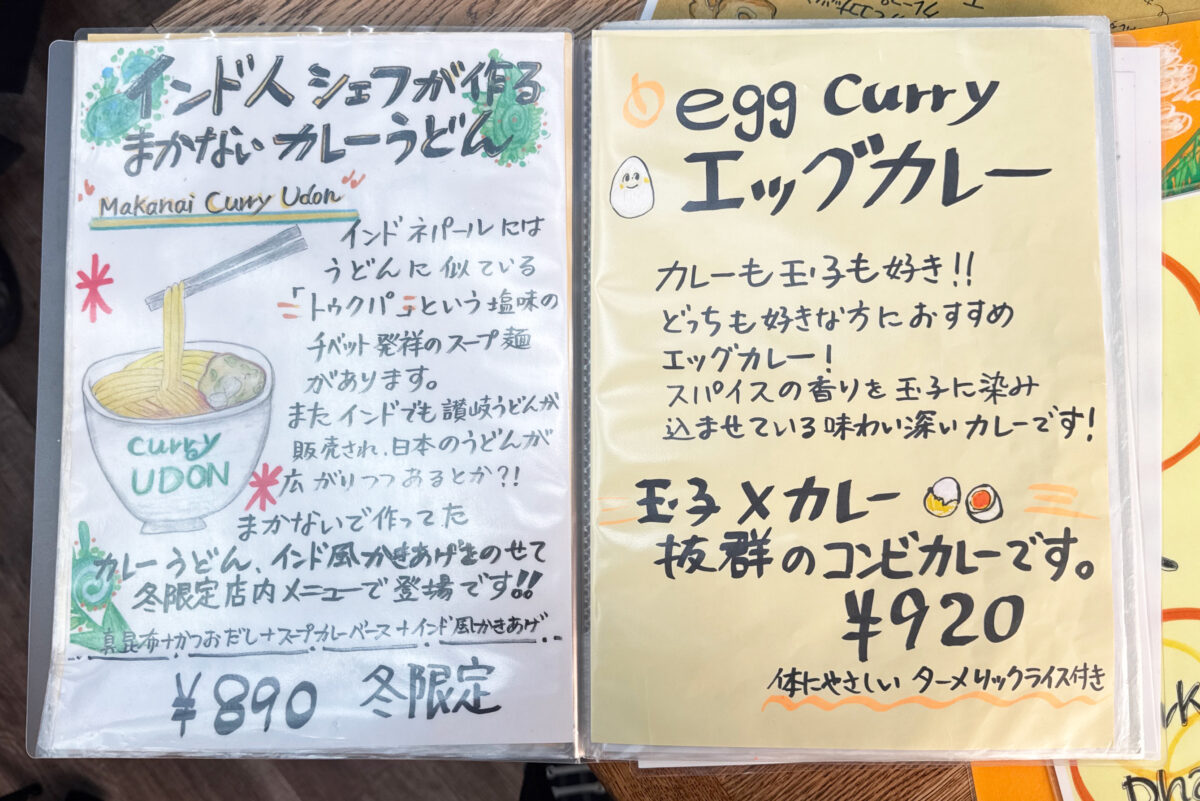 インド人シェフが作る
まかないカレーうどん
Makanai Curry Udon
インドネパールには
うどんに似ている
「トゥクパ」という塩味の
チベット発祥のスープ麺
があります。
またインドでも讃岐うどんが
販売され、日本のうどんが
広がりつつあるとか?!
まかないで作ってた
カレーうどん、インド風かきあげをのせて
冬限定店内メニューで登場です!!
真昆布+かつおだし+スープカレーベース+インド風かきあげ
¥890 冬限定
curry
UDON
egg curry
エッグカレー
カレーも玉子も好き!!
どっちも好きな方におすすめ
エッグカレー!
スパイスの香りを玉子に染み
込ませている味わい深いカレーです!
玉子×カレー
抜群のコンビカレーです。
¥920
体にやさしい ターメリックライス付き
Dha